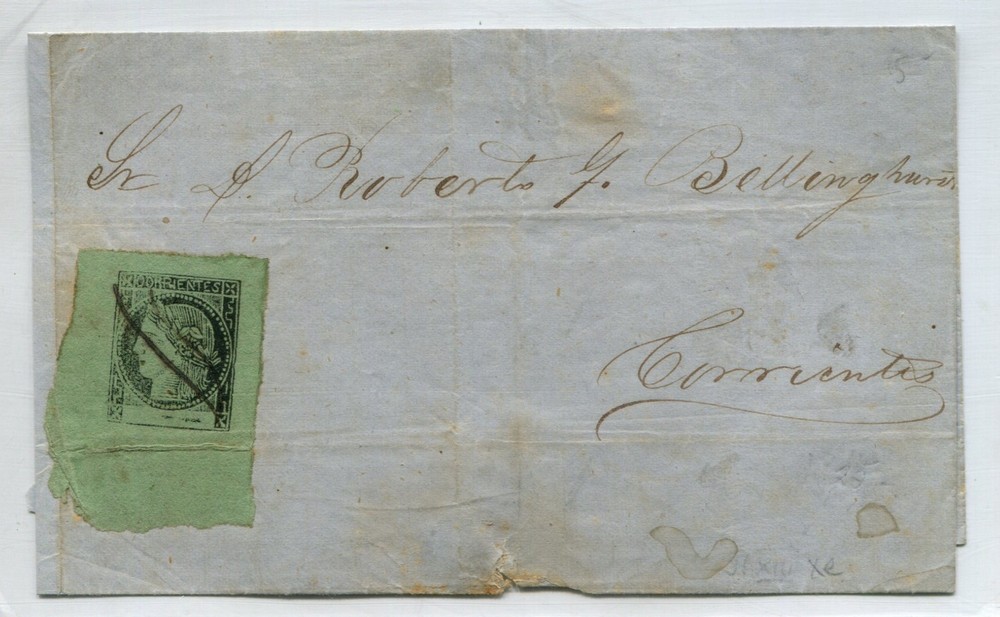 5
Sr D. Roberto G. Billinghurst
CORRIENTES
Corrientes
25
xe